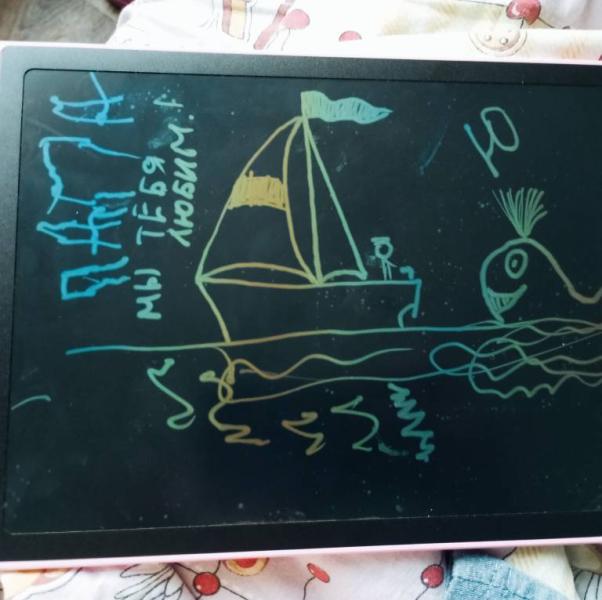 ПАПА
МЫ ТЕБЯ
ЛЮБИМ
Ю